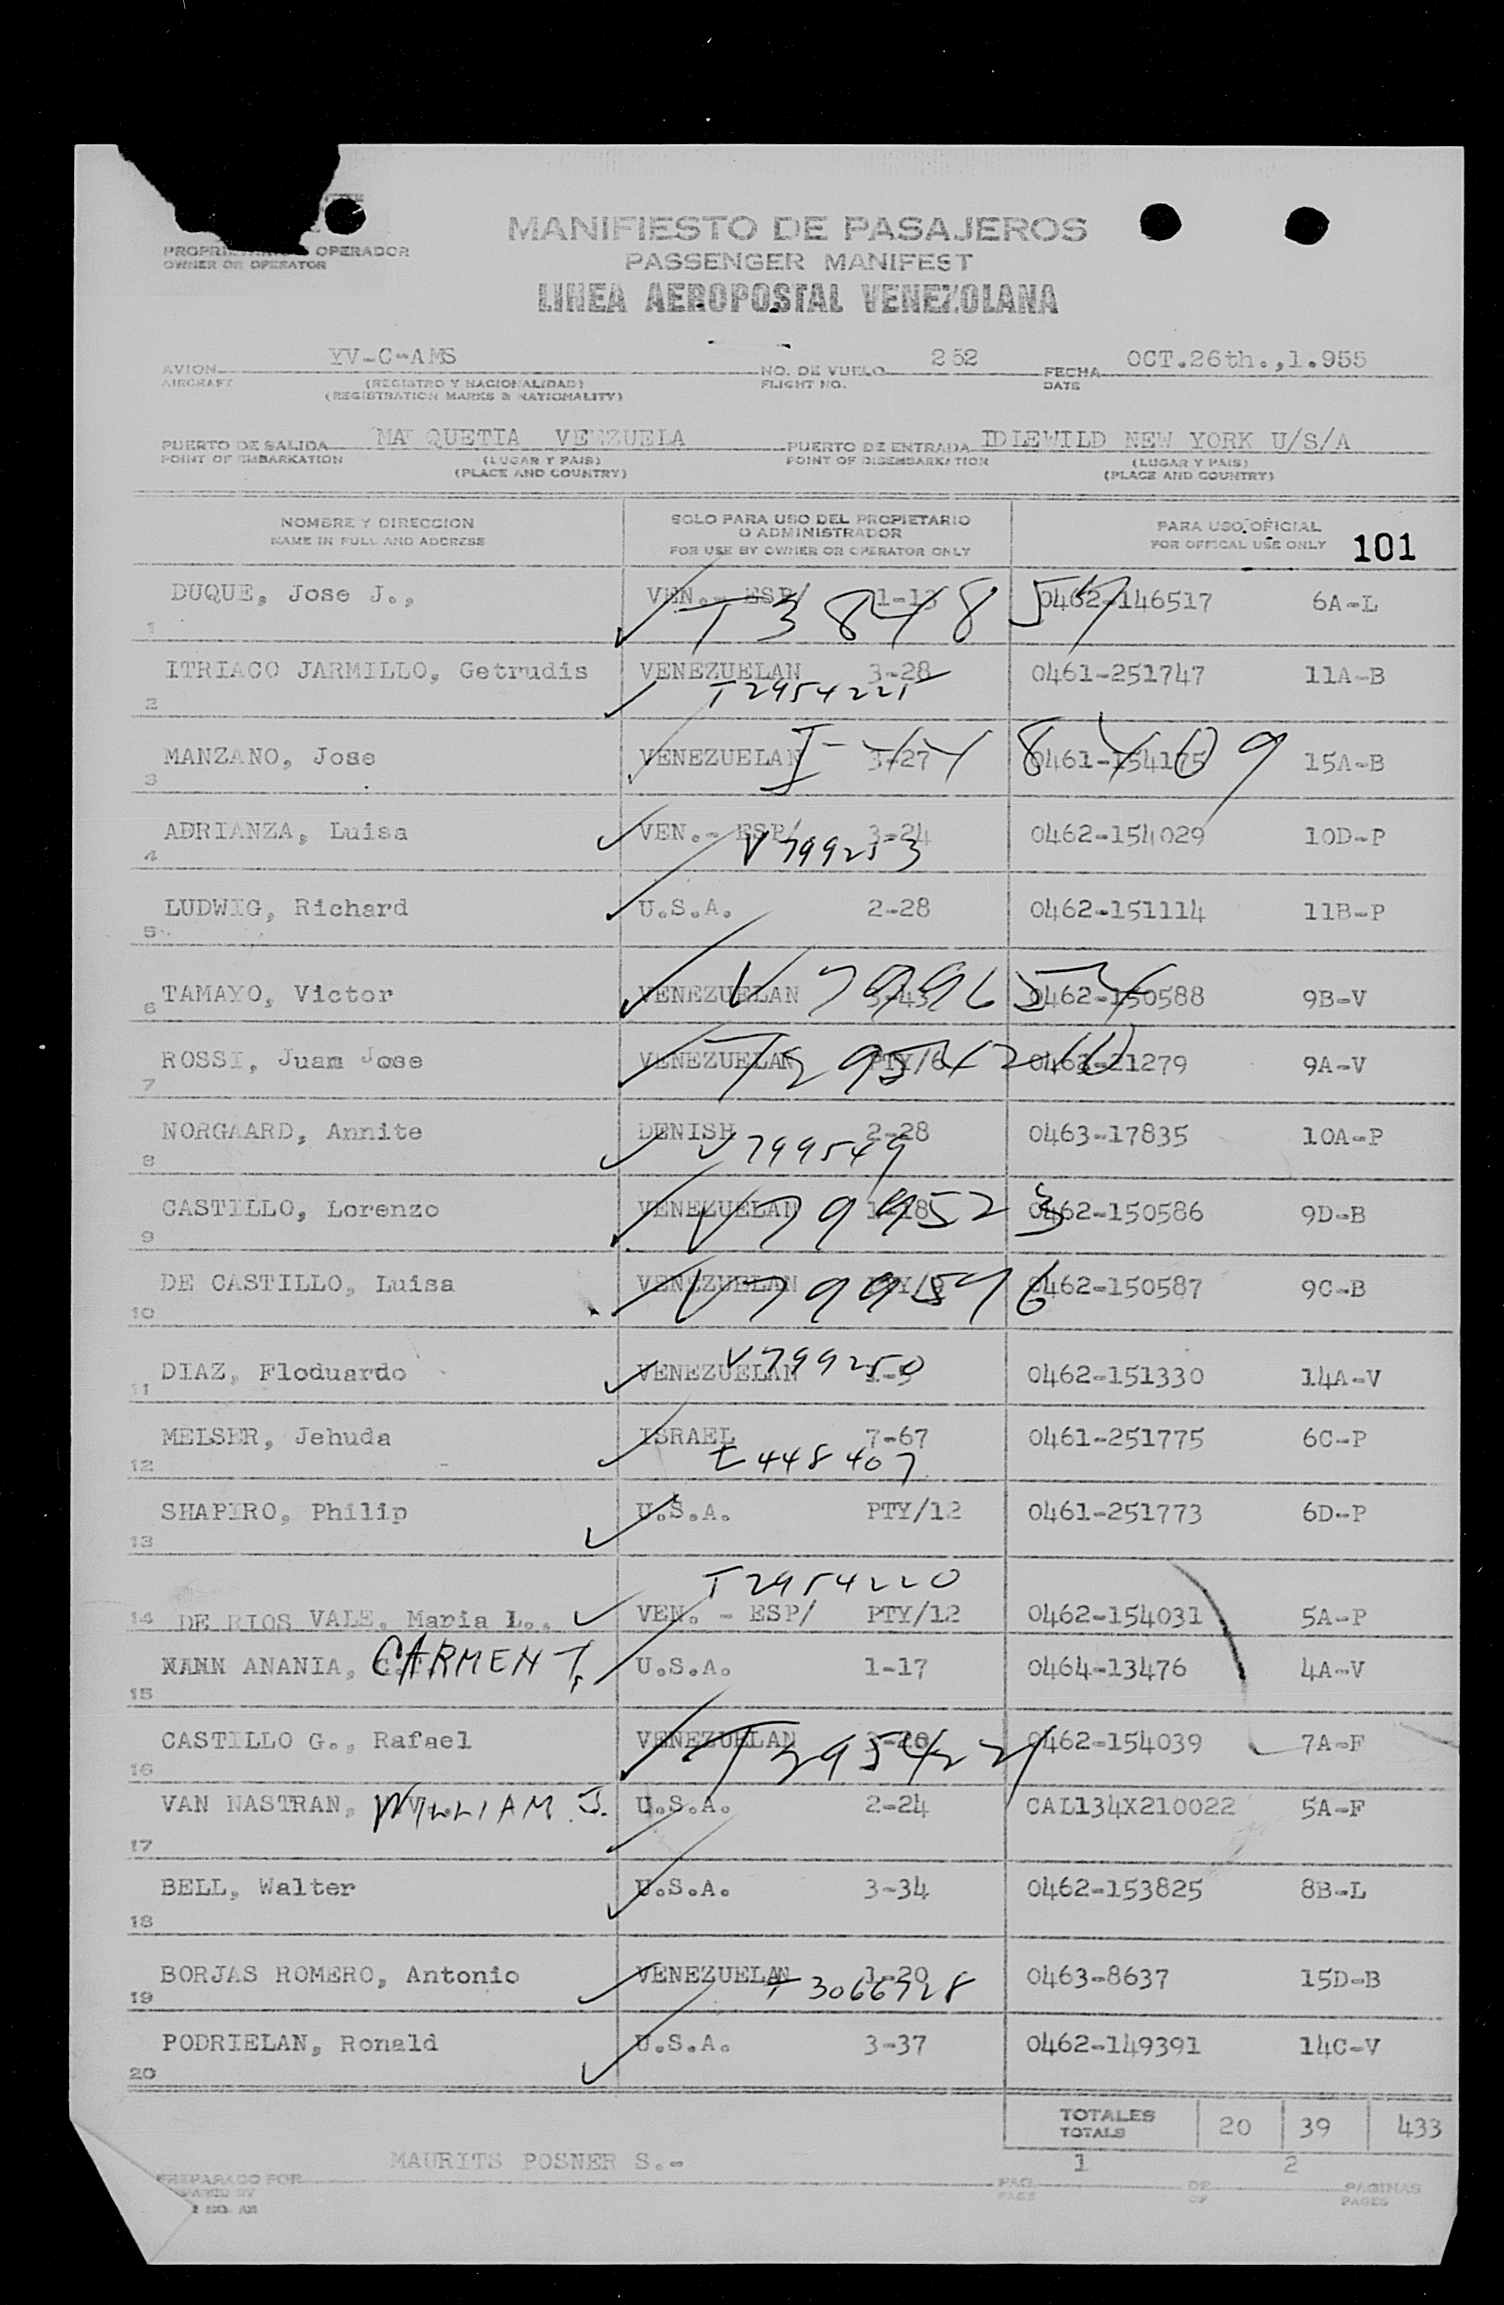 OPERADOR
OWNER OR OPERATOR
MANIFIESTO DE PASAJEROS
PASSENGER MANIFEST
LINEA AEROPOSTAL VENEZOLANA
AVION YV-C-AMS NO. DE VUELO 252 FECHA OCT.26th.,1.955
AIRCRAFT (REGISTRO Y NACIONALIDAD) FLIGHT NO. DATE
(REGISTRATION MARKS & NATIONALITY)
PUERTO DE SALIDA MA QUETIA VENEZUELA PUERTO DE ENTRADA IDLEWILD NEW YORK U/S/A
POINT OF EMBARKATION (LUGAR Y PAIS) POINT OF DISEMBARKATION (LUGAR Y PAIS)
(PLACE AND COUNTRY) (PLACE AND COUNTRY)
NOMBRE Y DIRECCION SOLO PARA USO DEL PROPIETARIO PARA USO OFICIAL
O ADMINISTRADOR
NAME IN FULL AND ADDRESS FOR USE BY OWNER OR OPERATOR ONLY FOR OFFICAL USE ONLY 101
1 DUQUE, Jose J., VEN.- ESP/ 1-13 0462-146517 6A-L
T 3848 57
2 ITRIACO JARMILLO, Getrudis VENEZUELAN 3-28 0461-251747 11A-B
T2954221
3 MANZANO, Jose VENEZUELAN 3-27 0461-154175 15A-B
4 ADRIANZA, Luisa VEN.- ESP/ 3-24 0462-154029 10D-P
V799253
5 LUDWIG, Richard U.S.A. 2-28 0462-151114 11B-P
6 TAMAYO, Victor VENEZUELAN 3-43 0462-150588 9B-V
V 799654
7 ROSSI, Juan Jose VENEZUELAN PTY/6 0461-21279 9A-V
8 NORGAARD, Annite DENISH 2-28 0463-17835 10A-P
V799549
9 CASTILLO, Lorenzo VENEZUELAN 1-18 0462-150586 9D-B
V799523
10 DE CASTILLO, Luisa VENEZUELAN PTY/9 0462-150587 9C-B
V799546
V799250
11 DIAZ, Floduardo VENEZUELAN 1-9 0462-151330 14A-V
12 MELSER, Jehuda ISRAEL 7-67 0461-251775 6C-P
I448407
13 SHAPIRO, Philip U.S.A. PTY/12 0461-251773 6D-P
T2954220
14 DE RIOS VALE, Maria L., VEN. - ESP/ PTY/12 0462-154031 5A-P
15 MANN ANANIA, CARMEN T. U.S.A. 1-17 0464-13476 4A-V
16 CASTILLO G., Rafael VENEZUELAN 3-28 0462-154039 7A-F
17 VAN NASTRAN, WILLIAM J. U.S.A. 2-24 CAL134X210022 5A-F
18 BELL, Walter U.S.A. 3-34 0462-153825 8B-L
19 BORJAS ROMERO, Antonio VENEZUELAN 1-20 0463-8637 15D-B
T 3066728
20 PODRIELAN, Ronald U.S.A. 3-37 0462-149391 14C-V
TOTALES
TOTALS 20 39 433
PREPARADO POR MAURITS POSNER S.- PAG. 1 DE 2 PAGINAS
PAGE OF PAGES